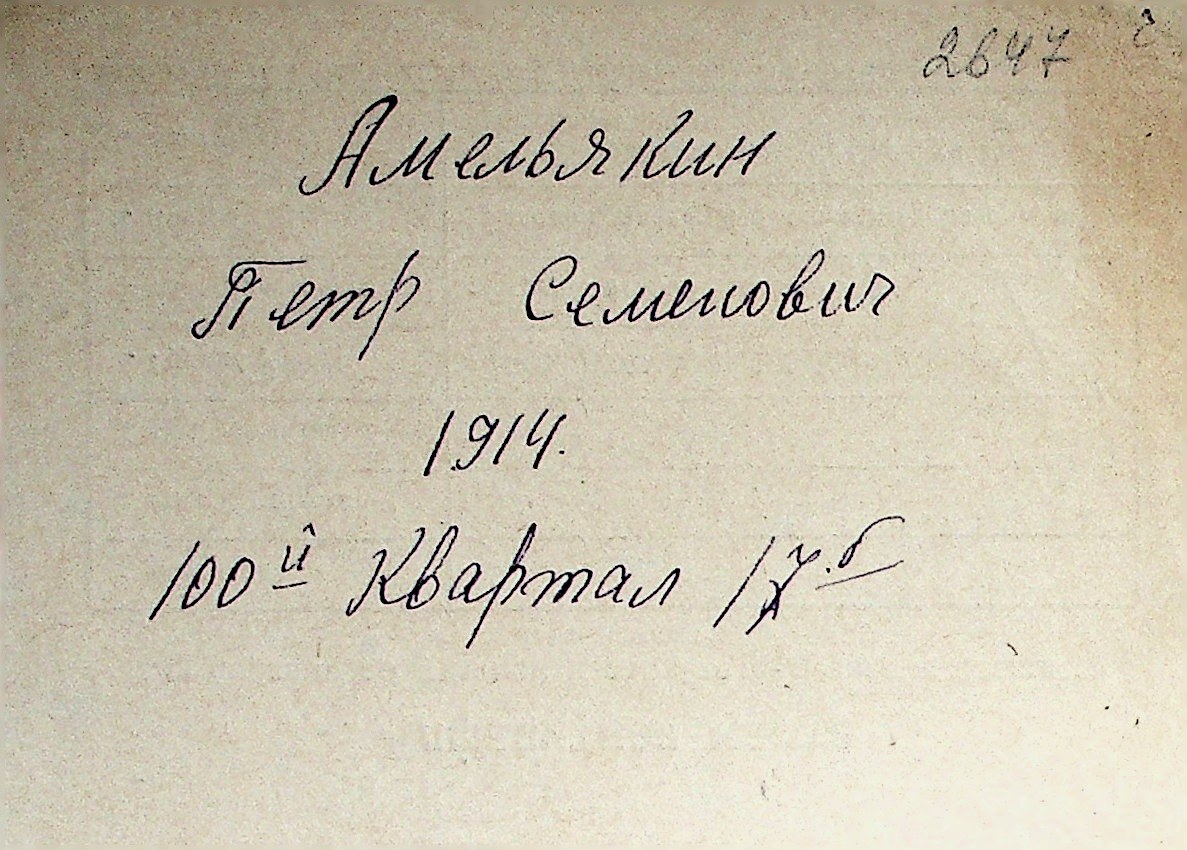 2647
Амельякин
Петр Семенович
1914.
100й Квартал 17.б